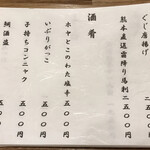 ぐじ唐揚げ
熊本直送霜降り馬刺 二、五〇〇円
酒肴
ホヤとこのわた塩辛 五〇〇円
いぶりがっこ 五〇〇円
子持ちコンニャク 五〇〇円
五〇〇円